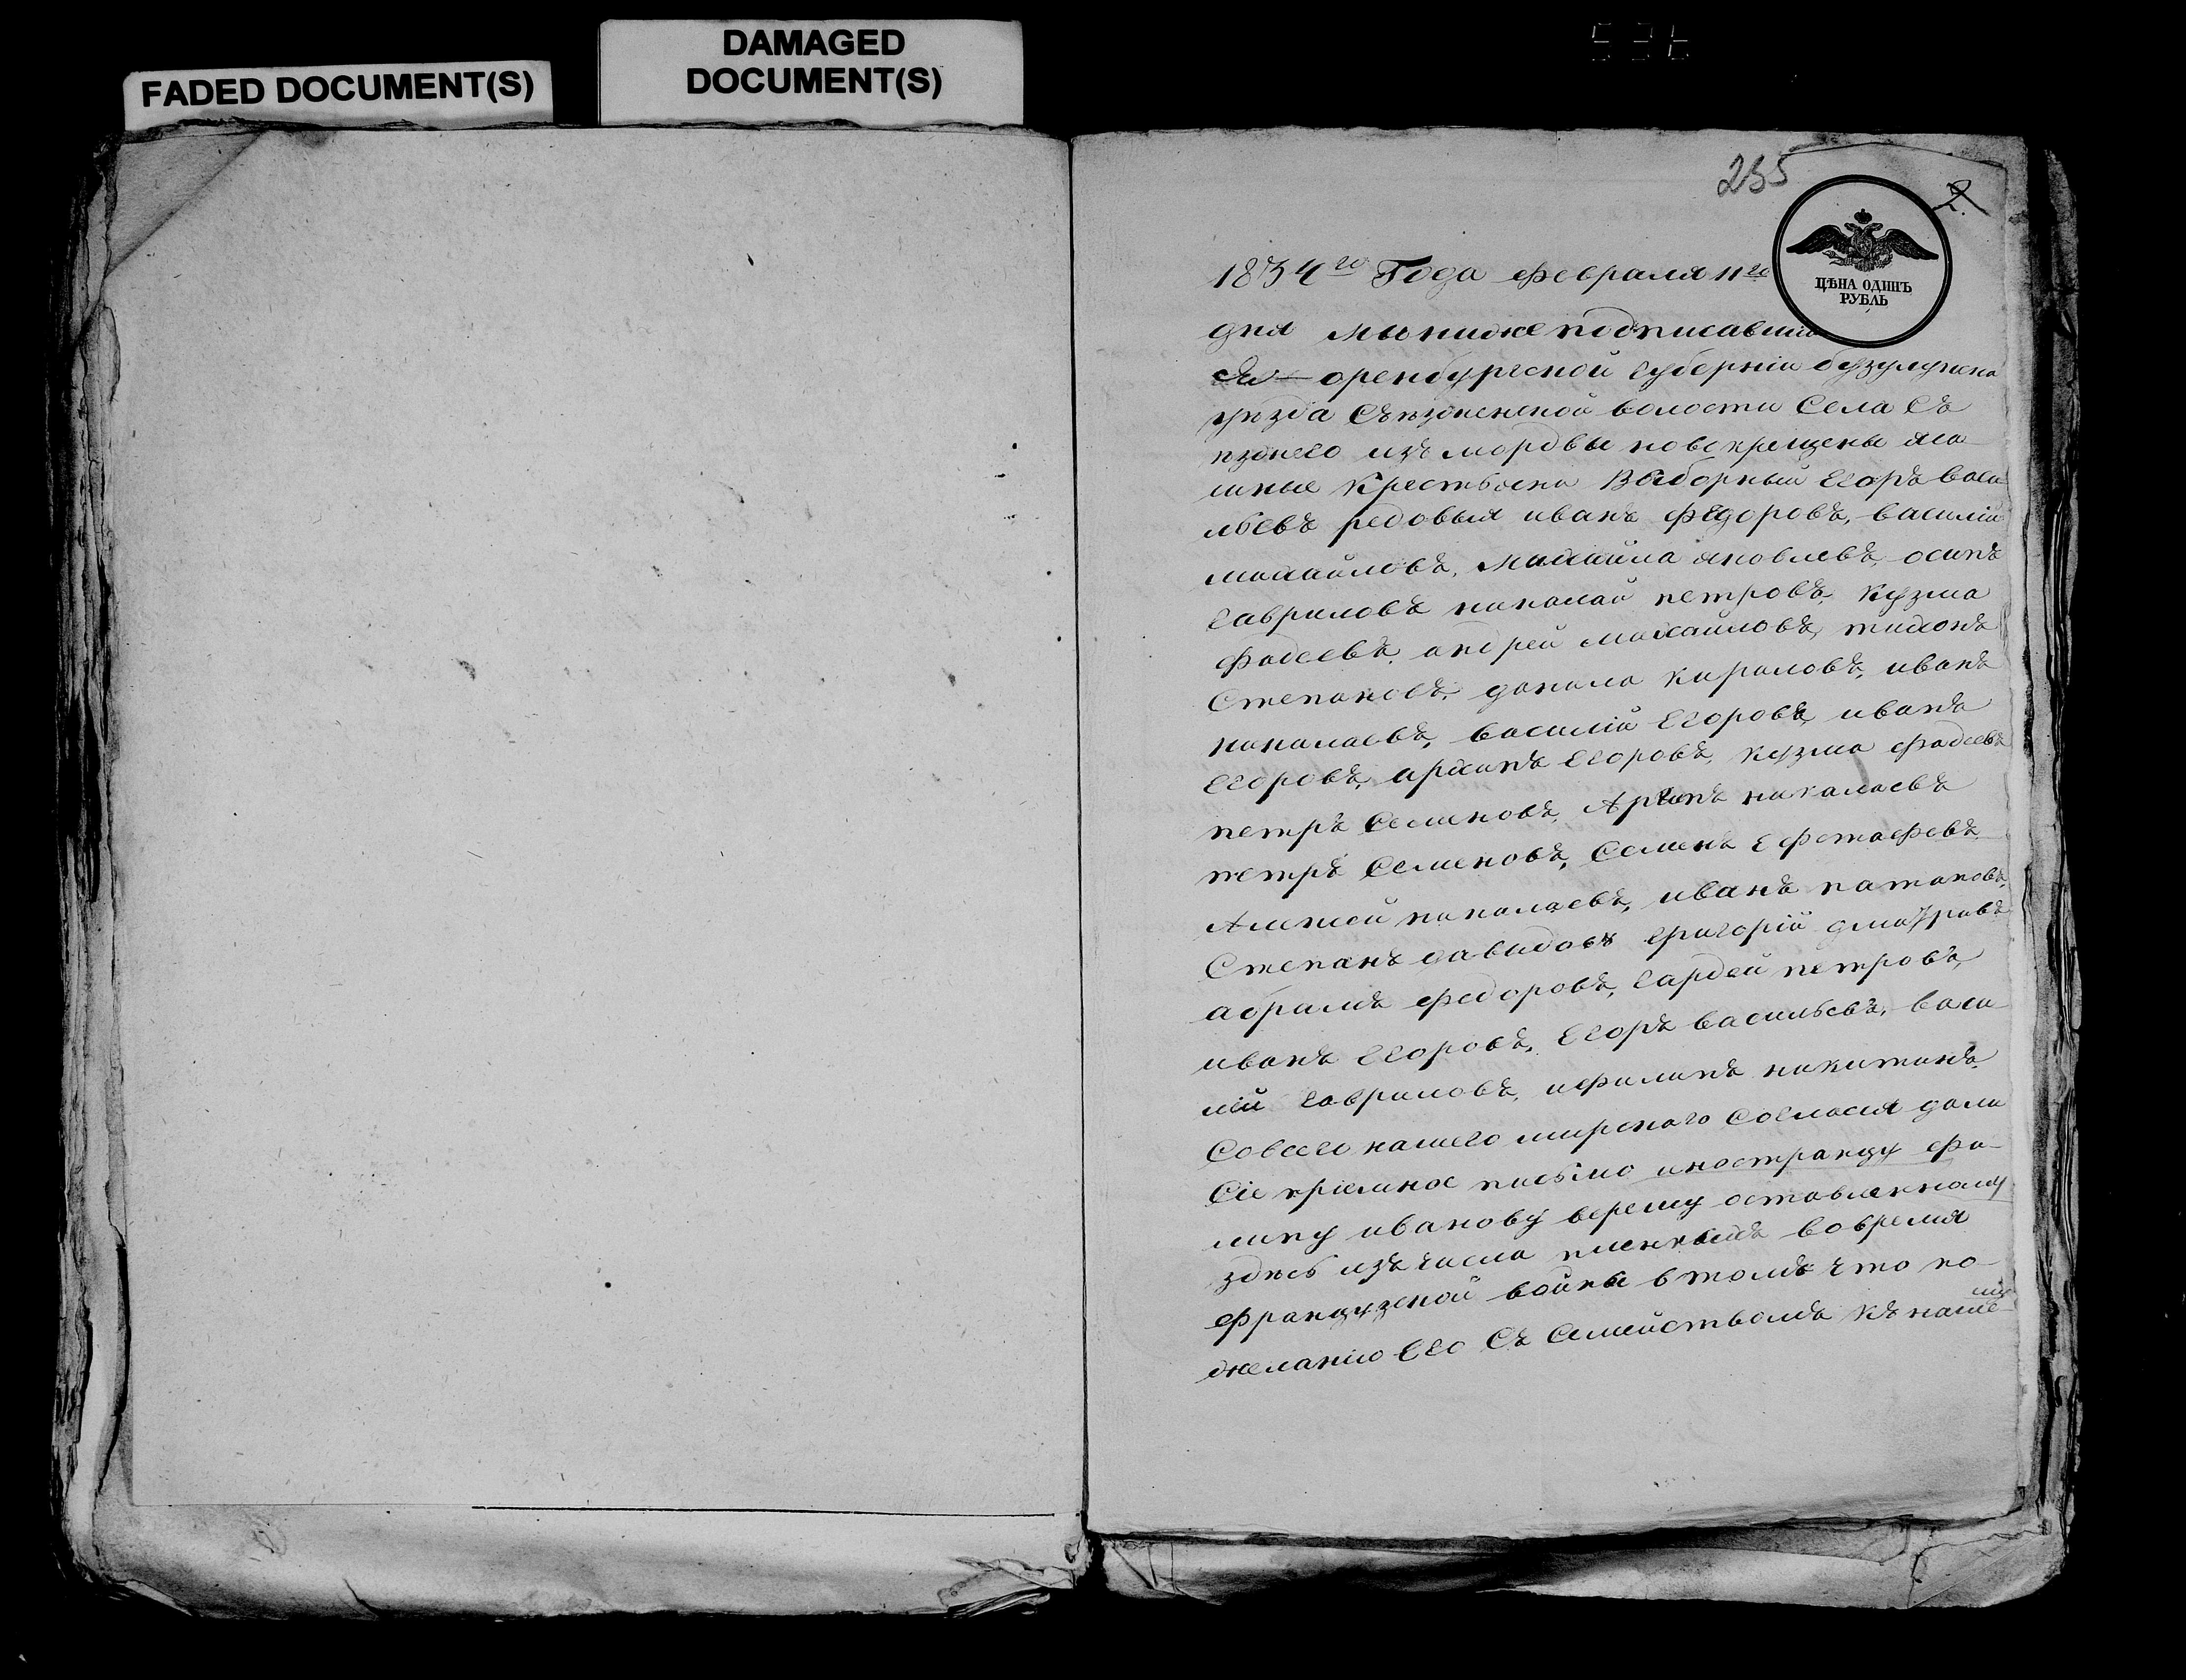 FADED DOCUMENT(S)
DAMAGED
DOCUMENT(S)
255
2.
ЦѢНА ОДИНЪ
РУБЛЬ
1834го Года февраля 11го
дня мы нижеподписавшие
ся оренбургской губернiи бузулукска
уѣзда Съѣзженской волости Села Съ
ѣзжего изъ мордвы новокрещены яса
шные Крестьяна Выборный Егоръ васи
льевъ редовыя иванъ федоровъ, василiи
михайловъ, михайла яковлевъ, осипъ
гавриловъ николаи петровъ, кузма
фадеевъ, андреи михайловъ, тихонъ
Степановъ, данила кириловъ, иванъ
николаевъ, василiи Егоровъ, иванъ
Егоровъ, архипъ Егоровъ, кузма фадеевъ
петръ Семеновъ, Архипъ николаевъ
петръ Семеновъ, Семенъ Ефстафевъ
Алексеи николаевъ, иванъ патаповъ,
Степанъ давыдовъ григорiи дмитривъ
абрамъ федоровъ, гардеи петровъ,
иванъ Егоровъ, Егоръ васильевъ, васи
лiи гавриловъ, ифилипъ никитинъ
Совсего нашего мирскаго Согласия дали
Сiе прiемное письмо иностранцу фи-
липу иванову верему оставленному
здѣсь изъ числа пленныхъ вовремя
французской войны втомъ что по
желанiю Его Съ Семействомъ Къ наше
му